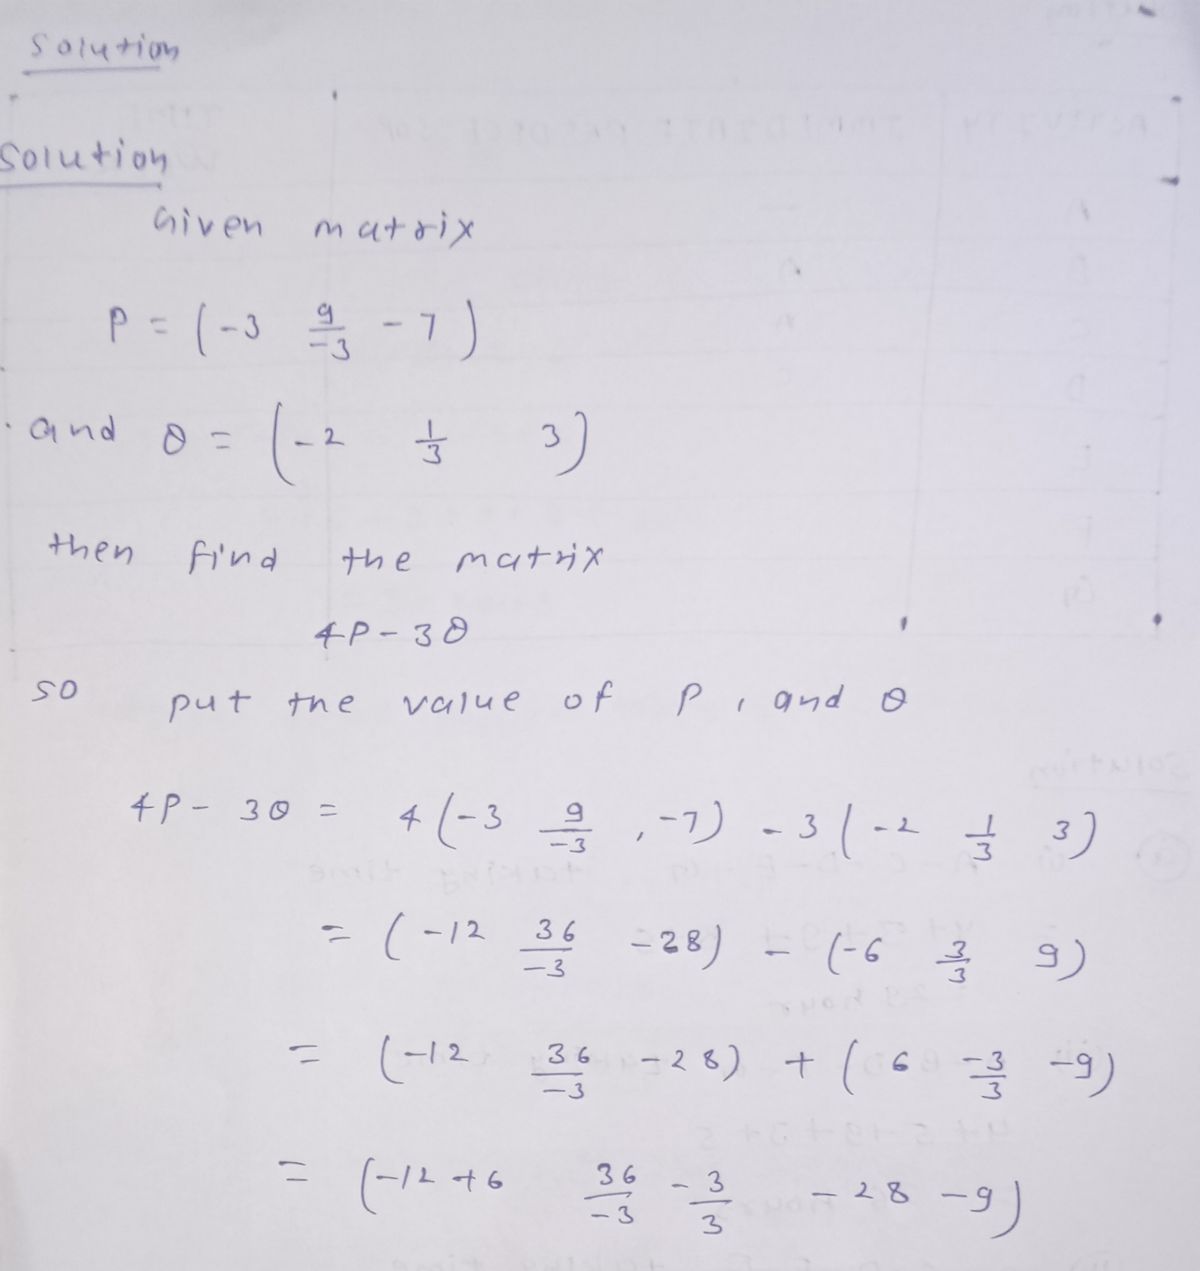 Solution
Solution
Given matrix
P = (-3 9/-3 -7)
and θ = (-2 1/3 3)
then find the matrix
4P-3θ
so put the value of P, and θ
4P- 3θ = 4(-3 9/-3 ,-7) -3(-2 1/3 3)
= (-12 36/-3 -28) - (-6 3/3 9)
= (-12 36/-3 -28) + (6 -3/3 -9)
= (-12+6 36/-3 - 3/3 -28-9)